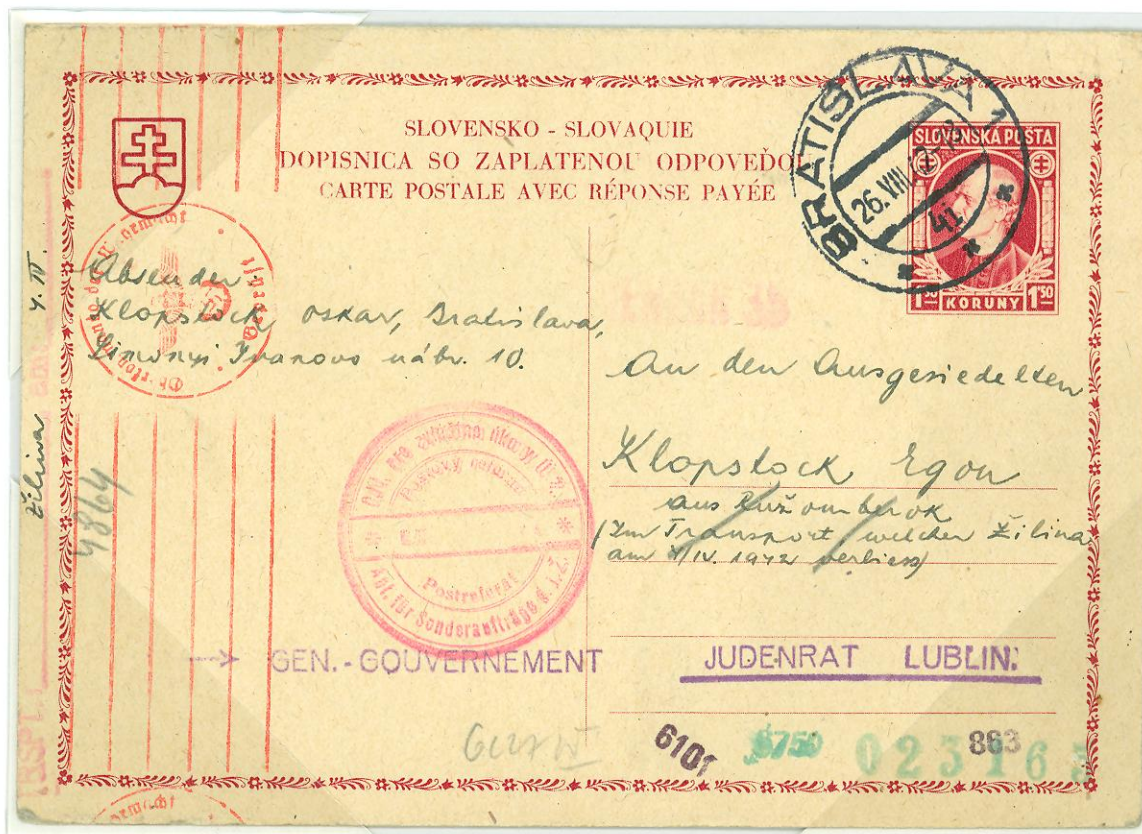 SLOVENSKO - SLOVAQUIE
DOPISNICA SO ZAPLATENOU ODPOVEĎOU
CARTE POSTALE AVEC RÉPONSE PAYÉE
BRATISLAVA 1
26.VIII.42
4i
SLOVENSKÁ POŠTA
1 50 KORUNY 1 50
Absender:
Klopstock Oskar, Bratislava,
Ivanovo nábr. 10.
Oberkommando der Wehrmacht
Geprüft
Žilina 4. IV
4864
odd. pre zvláštne úkony
Poštový referát
Postreferat
Abt. für Sonderaufträge d. J.Z.
An den Ausgesiedelten
Klopstock Egon
aus Ružomberok
(Im Transport welcher Žilina
am 4/IV. 1942 verliess)
GEN.-GOUVERNEMENT
JUDENRAT LUBLIN.
RSPT
6101
$750
02316
863